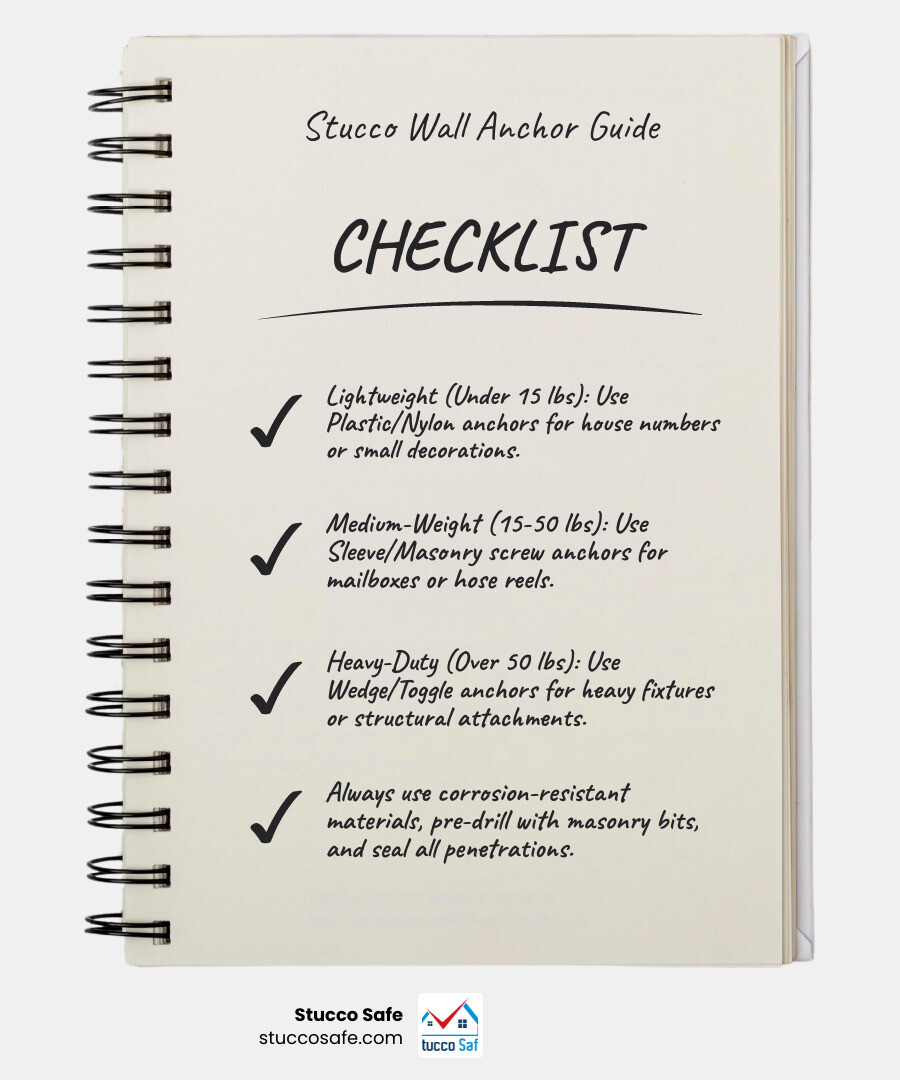 Stucco Wall Anchor Guide
CHECKLIST
Lightweight (Under 15 lbs): Use
Plastic/Nylon anchors for house numbers
or small decorations.
Medium-Weight (15-50 lbs): Use
Sleeve/Masonry screw anchors for
mailboxes or hose reels.
Heavy-Duty (Over 50 lbs): Use
Wedge/Toggle anchors for heavy fixtures
or structural attachments.
Always use corrosion-resistant
materials, pre-drill with masonry bits,
and seal all penetrations.
Stucco Safe
stuccosafe.com
tucco Saf